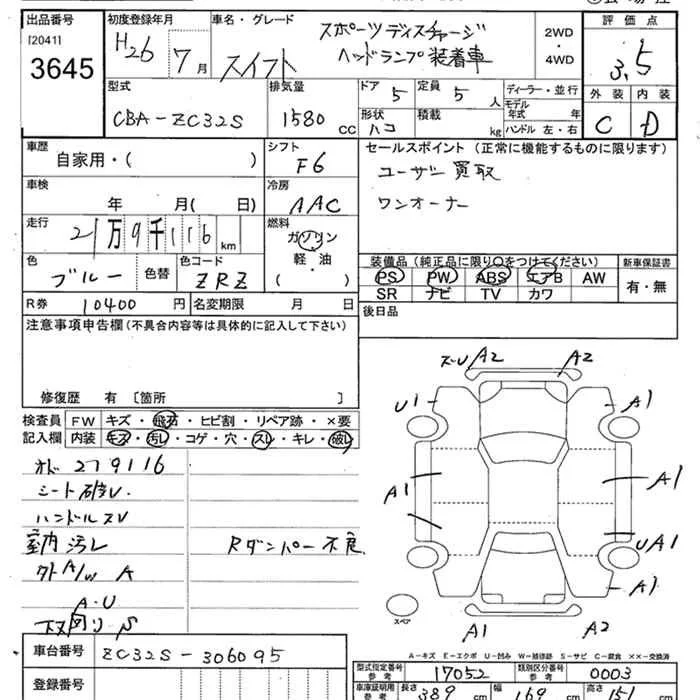 出品番号
[2041]
3645
初度登録年月
H26 7月
車名・グレード
スイフト
スポーツディスチャージ
ヘッドランプ装着車
2WD
・
4WD
評価点
3.5
外装 内装
C D
型式
CBA-ZC32S
排気量
1580 CC
ドア 5
定員 5 人
形状 ハコ
積載 kg
ディーラー・並行
モデル年式 年
ハンドル 左・右
車歴
自家用・( )
シフト
F6
セールスポイント (正常に機能するものに限ります)
ユーザー買取
ワンオーナー
車検
年 月( 日)
冷房
AAC
走行
21万9千116km
燃料
ガソリン
軽・油
( )
色
ブルー
色替
色コード
ZRZ
装備品 (純正品に限り○をつけてください)
PS PW ABS エアB AW
SR ナビ TV カワ
新車保証書
有・無
R券 10400円
名変期限 月 日
後日品
注意事項申告欄 (不具合内容等は具体的に記入して下さい)
修復歴 有 [箇所 ]
検査員記入欄
FW キズ・飛石・ヒビ割・リペア跡・×要
内装 キズ・汚レ・コゲ・穴・スレ・キレ・破レ
オド 219116
シート破レ
ハンドルスレ
室内汚レ
Rダンパー不良
クトA/W A
A・U
下回リS
ズU A2 A2
U1 A1
A1 A1
UA1
A1
A1 A2
スペア
A-キズ E-エクボ U-凹み W-補修跡 S-サビ C-腐食 ××-交換済
車台番号 ZC32S-306095
登録番号
型式指定番号 参考 17052
類別区分番号 参考 0003
車庫証明用 参考
長さ 389 cm
幅 169 cm
高さ 151 cm